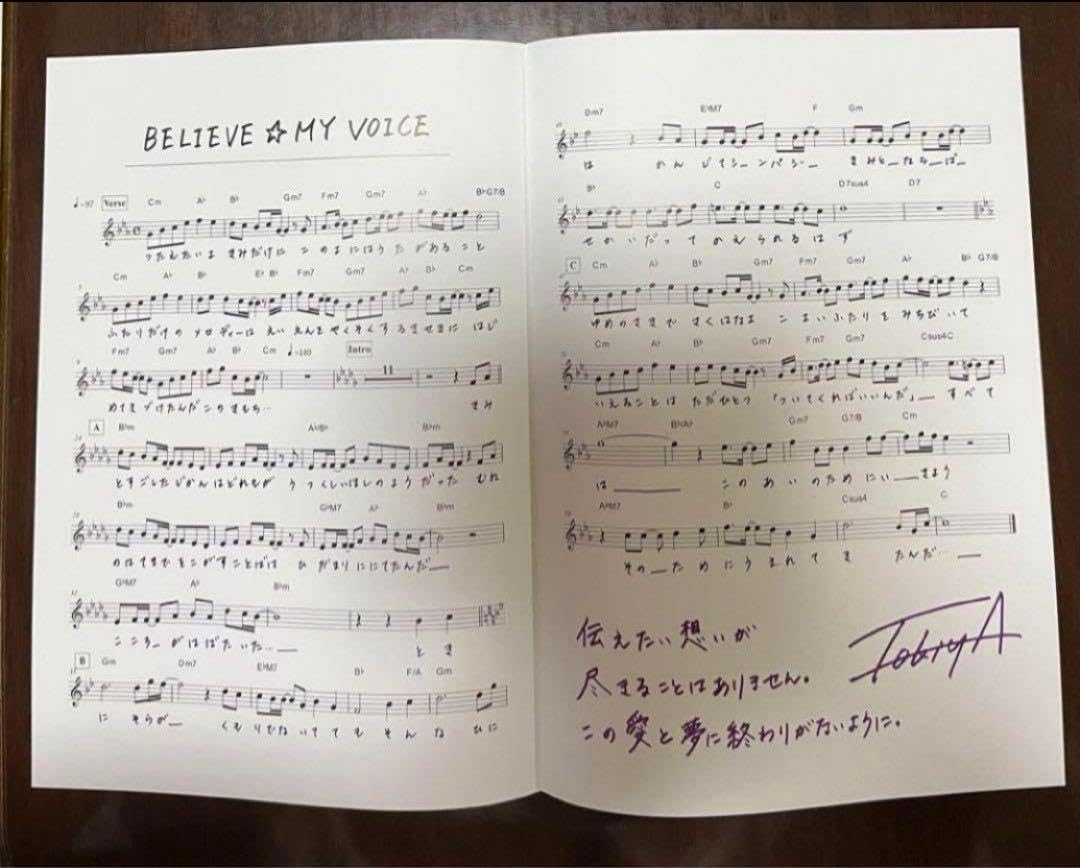 BELIEVE☆MY VOICE
♩=97 Verse Cm A♭ B♭ Gm7 Fm7 Gm7 A♭ B♭ G7/B
つたえたいよ きみだけに このよにはうた があること
Cm A♭ B♭ E♭ B♭ Fm7 Gm7 A♭ B♭ Cm
ふたりだけの メロディーは えいえんをやくそくするきせきに はじ
Fm7 Gm7 A♭ B♭ Cm ♩=140 Intro
11
めてきづけたんだこのきもち… きみ
A B♭m A♭/B♭ B♭m
とすごしたじかんはどれもが うつくしいほしのよう だった むね
B♭m G♭M7 A♭ B♭m
のはてまで をこがすことばは ひだまりににてたんだ
G♭M7 A♭ B♭m
こころーがはばたいた… とき
B Gm Dm7 E♭M7 B♭ F/A Gm
に そらが くもりでないてても そんな ひに
Dm7 E♭M7 F Gm
は かんじてシーンパシー きみとーならーば
B♭ C D7sus4 D7
せかいだって かえられるはず
C Cm A♭ B♭ Gm7 Fm7 Gm7 A♭ B♭ G7/B
ゆめのさきで さくはなよ こまいふたりを みちびいて
Cm A♭ B♭ Gm7 Fm7 Gm7 Csus4 C
いえることは ただひとつ 「ついてくればいいんだ」 すべて
A♭M7 B♭(A♭) Gm7 G7/B Cm
は このあいのためにいーきよう
A♭M7 B♭ Csus4 C
そのーためにうまれてき たんだ…
伝えたい想いが
尽きることはありません。
この愛と夢に終わりがないように。
TokiyA